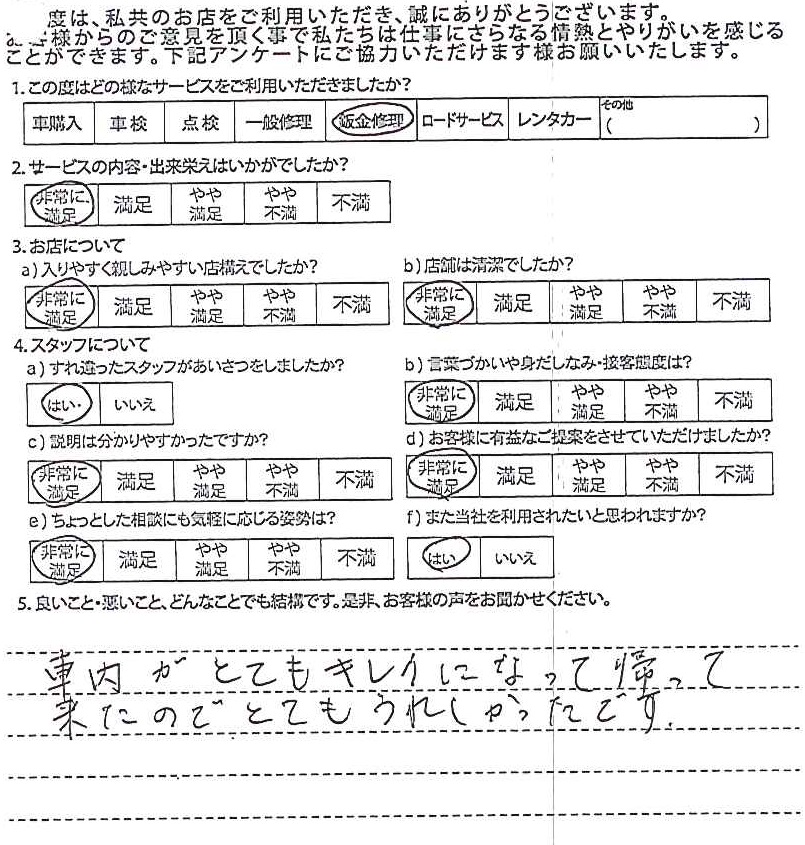 度は、私共のお店をご利用いただき、誠にありがとうございます。
客様からのご意見を頂く事で私たちは仕事にさらなる情熱とやりがいを感じる
ことができます。下記アンケートにご協力いただけます様お願いいたします。
1.この度はどの様なサービスをご利用いただきましたか?
車購入 車検 点検 一般修理 鈑金修理 ロードサービス レンタカー その他
( )
2.サービスの内容・出来栄えはいかがでしたか?
非常に満足 満足 やや満足 やや不満 不満
3.お店について
a)入りやすく親しみやすい店構えでしたか?
非常に満足 満足 やや満足 やや不満 不満
b)店舗は清潔でしたか?
非常に満足 満足 やや満足 やや不満 不満
4.スタッフについて
a)すれ違ったスタッフがあいさつをしましたか?
はい いいえ
b)言葉づかいや身だしなみ・接客態度は?
非常に満足 満足 やや満足 やや不満 不満
c)説明は分かりやすかったですか?
非常に満足 満足 やや満足 やや不満 不満
d)お客様に有益なご提案をさせていただけましたか?
非常に満足 満足 やや満足 やや不満 不満
e)ちょっとした相談にも気軽に応じる姿勢は?
非常に満足 満足 やや満足 やや不満 不満
f)また当社を利用されたいと思われますか?
はい いいえ
5.良いこと・悪いこと、どんなことでも結構です。是非、お客様の声をお聞かせください。
車内がとてもキレイになって帰って
来たのでとてもうれしかったです.